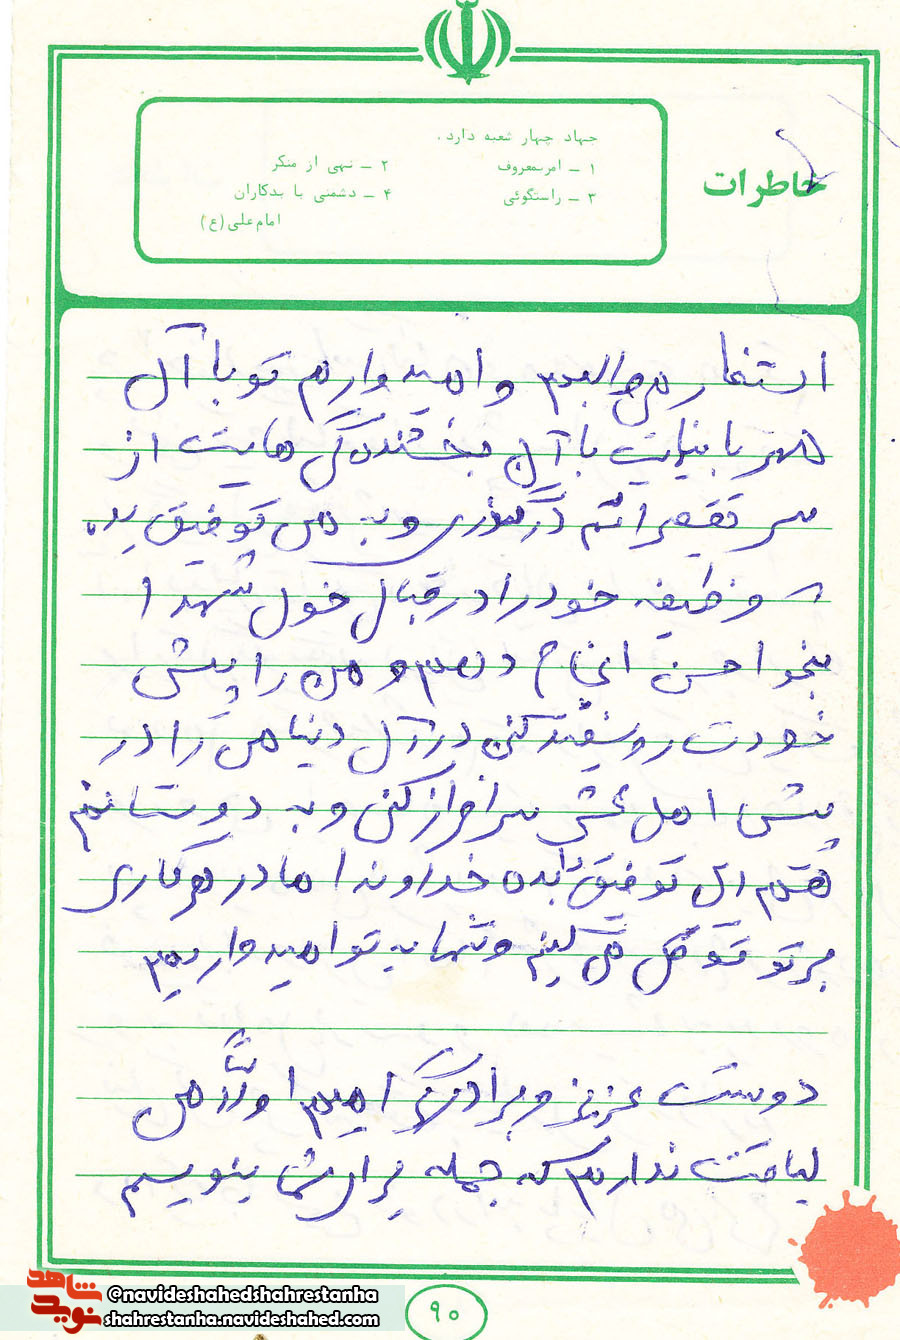 جهاد چهار شعبه دارد .
۱ ـ امر بمعروف ۲ ـ نهی از منکر
۳ ـ راستگوئی ۴ ـ دشمنی با بدکاران
امام علی (ع)
خاطرات
استغفار می‌طلبم و امیدوارم تو با آن
مهربانیت با آن بخشندگی هایت از
سر تقصیراتم درگذری و به من توفیق بده
که وظیفه خود را در قبال خون شهدا
بنحو احسن انجام دهم و من را پیش
خودت روسفید کنی در آن دنیا من را در
پیش اهل سرافراز کنی و به دوستانم
هم این توفیق را بده خداوندا ما در هر کاری
بر تو توکل می کنیم و تنها به تو امیدواریم
دوست عزیز و برادر گرامیم اولاً من
لیاقت ندارم که جمله برای شما بنویسم
شاهد
نوید
@navideshahedshahrestanha
shahrestanha.navideshahed.com
۹۰